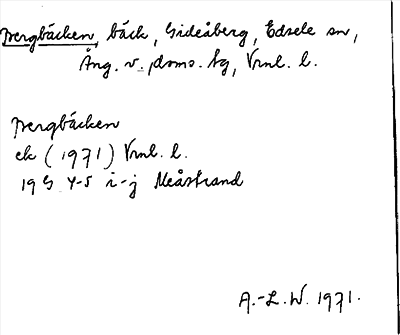 Dvergbäcken, bäck, Gideåberg, Edsele sn,
Ång. v. doms. lg, Vrnl. l.
Dvergbäcken
ek (1971) Vrnl. l.
19 G 4-5 i-j Meåstrand
A.-L. W. 1971.